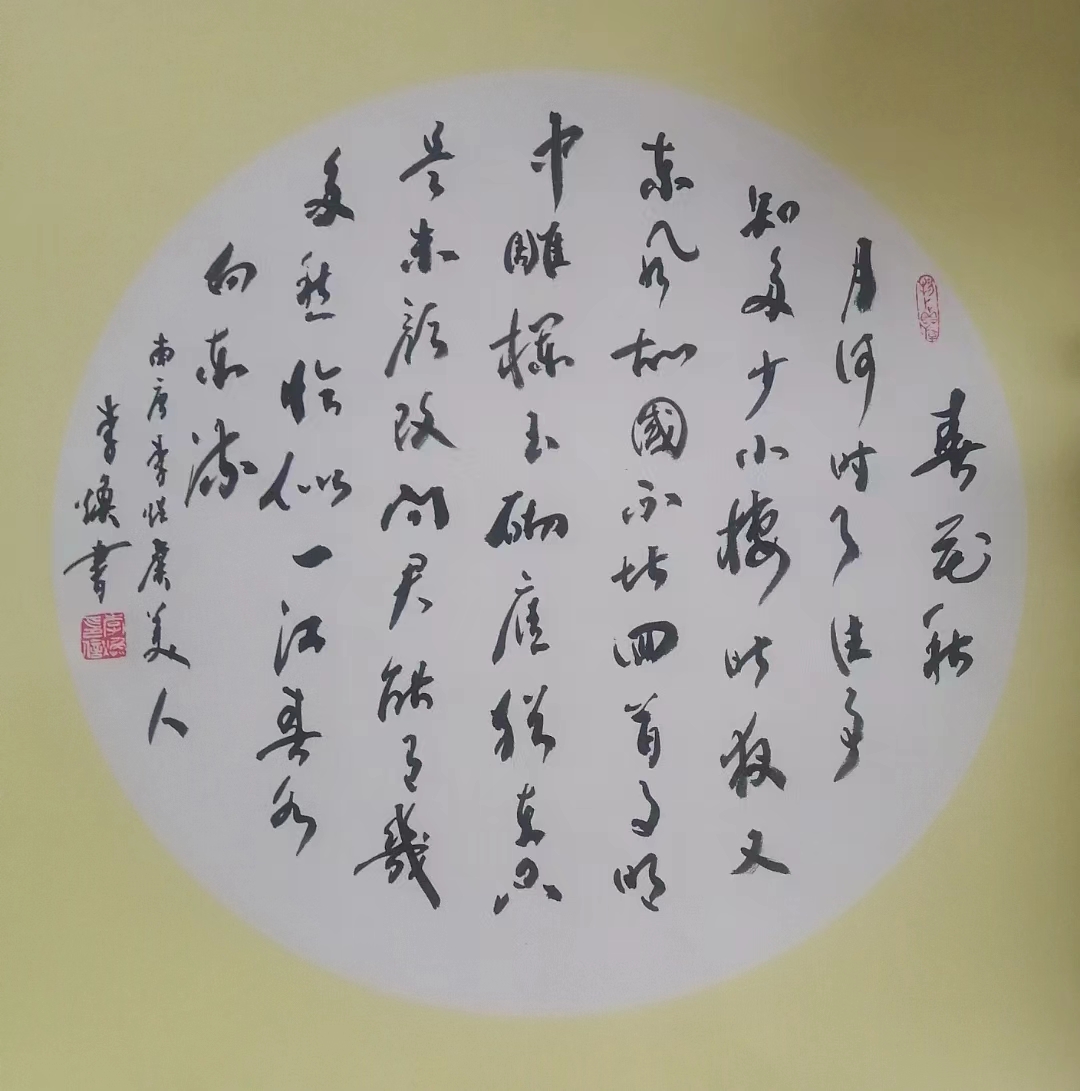 春花秋
月何时了往事
知多少小樓昨夜又
东风故國不堪回首月明
中雕欄玉砌應猶在只
是朱颜改问君能有幾
多愁恰似一江春水
向东流
南唐李煜虞美人
李焕書